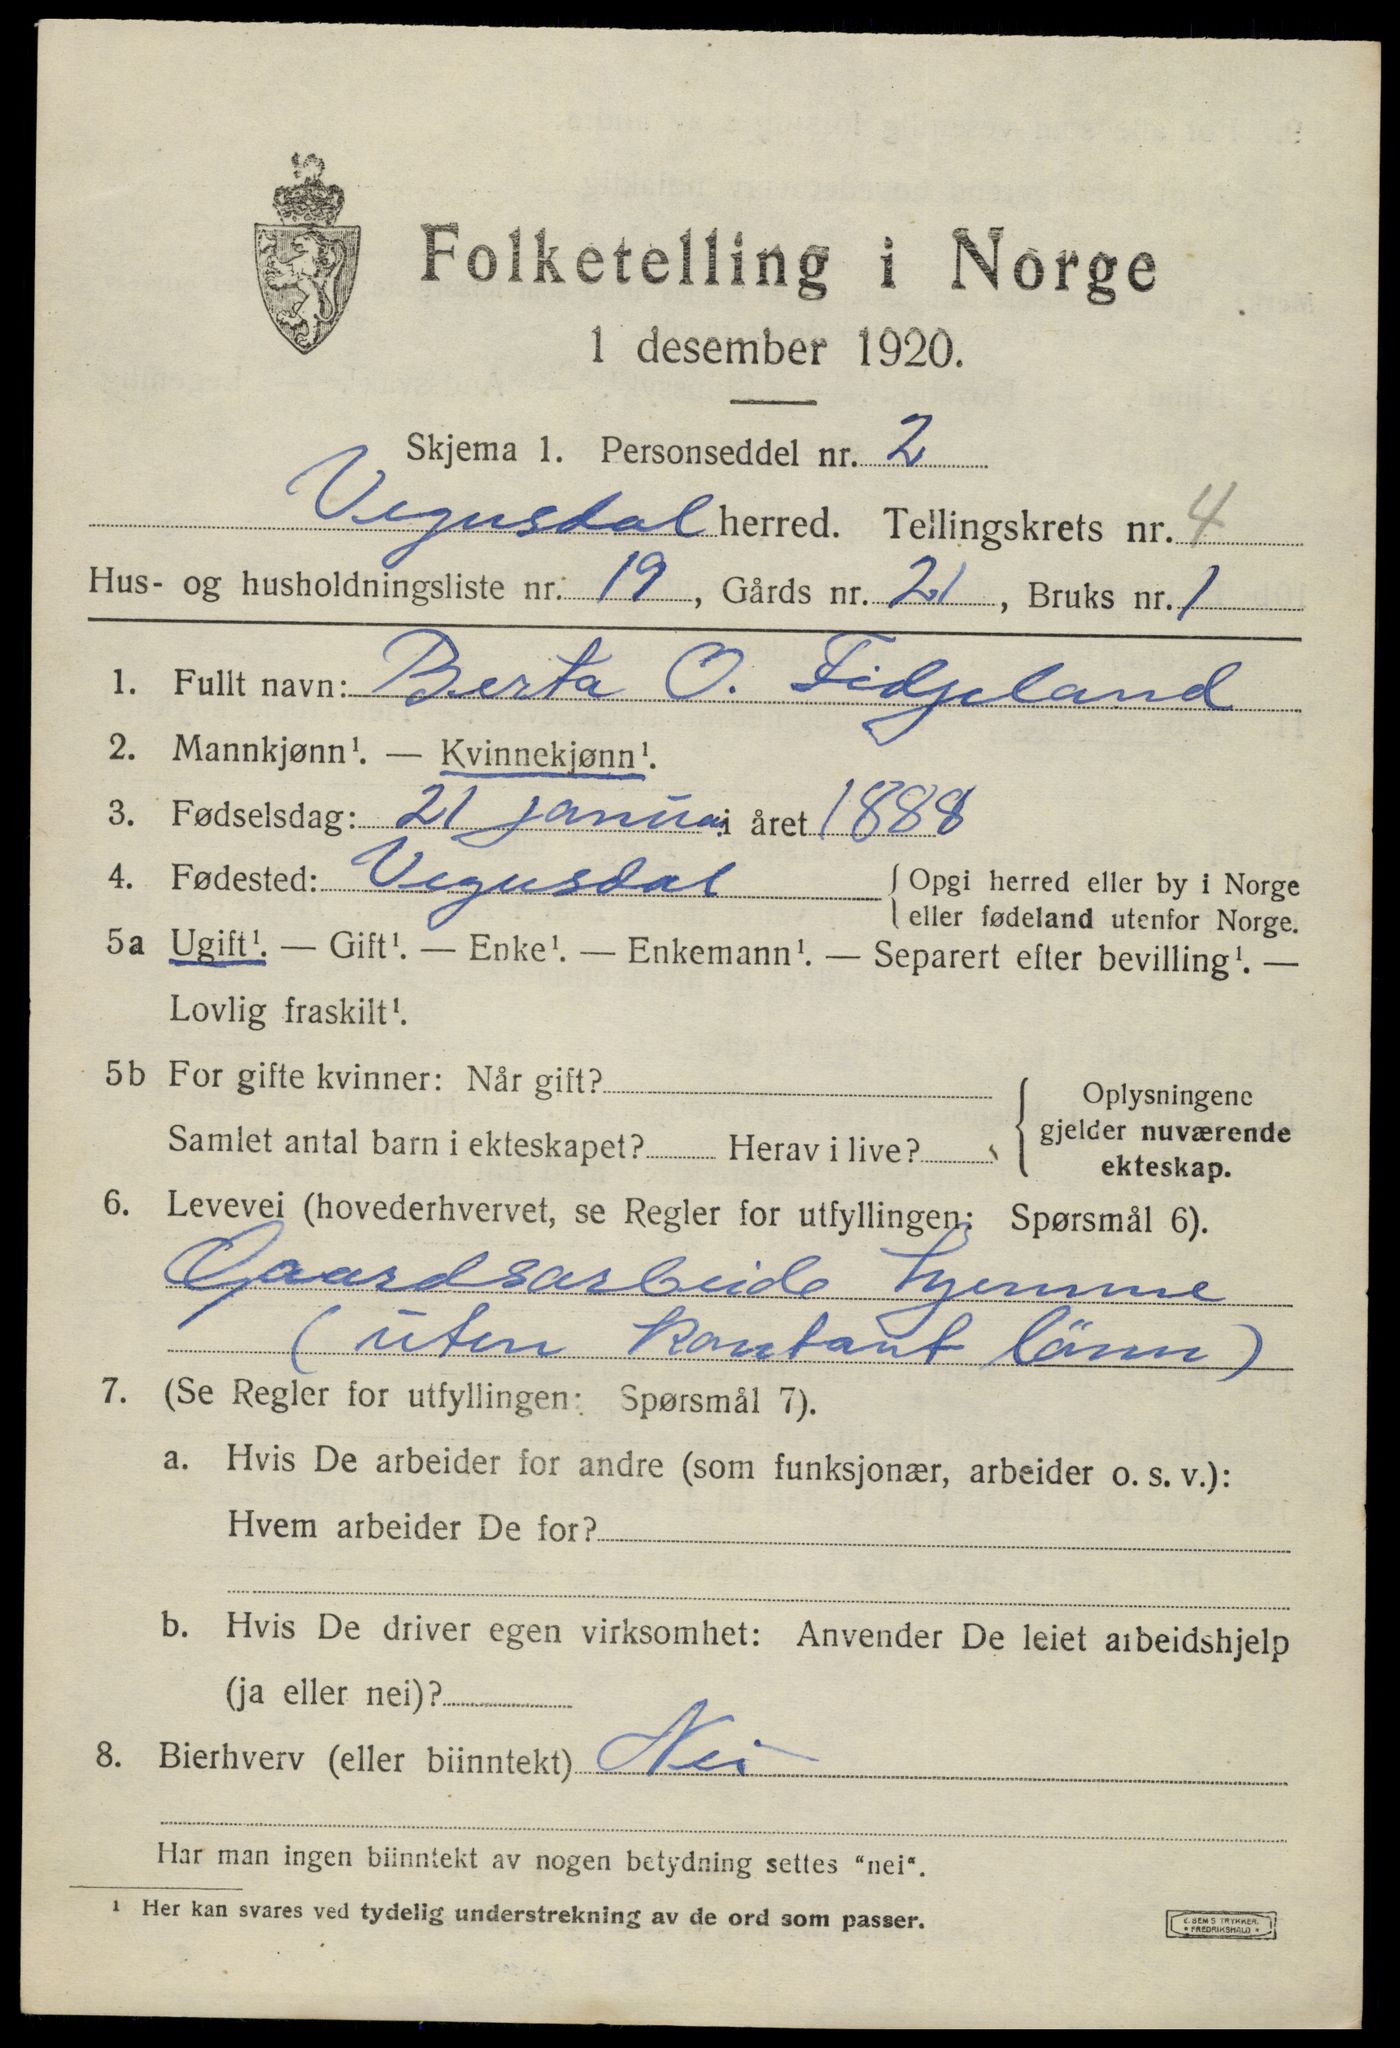 Folketelling i Norge
1 desember 1920.
Skjema 1. Personseddel nr. 2
Vegusdal herred. Tellingskrets nr. 4
Hus- og husholdningsliste nr. 19, Gårds nr. 21, Bruks nr. 1
1. Fullt navn: Berta O. Fidjeland
2. Mannkjønn¹. — Kvinnekjønn¹.
3. Fødselsdag: 21 januar i året 1888
4. Fødested: Vegusdal { Opgi herred eller by i Norge
eller fødeland utenfor Norge.
5a Ugift¹. — Gift¹. — Enke¹. — Enkemann¹. — Separert efter bevilling¹. —
Lovlig fraskilt¹.
5b For gifte kvinner: Når gift?
Samlet antal barn i ekteskapet? Herav i live?
Oplysningene
gjelder nuværende
ekteskap.
6. Levevei (hovederhvervet, se Regler for utfyllingen: Spørsmål 6).
Gaardsarbeide hjemme
(uten kontant lönn)
7. (Se Regler for utfyllingen: Spørsmål 7).
a. Hvis De arbeider for andre (som funksjonær, arbeider o. s. v.):
Hvem arbeider De for?
b. Hvis De driver egen virksomhet: Anvender De leiet arbeidshjelp
(ja eller nei)?
8. Bierhverv (eller biinntekt) Nei
Har man ingen biinntekt av nogen betydning settes "nei".
¹ Her kan svares ved tydelig understrekning av de ord som passer.
E. SEMS TRYKKER.
* FREDRIKSHALD *